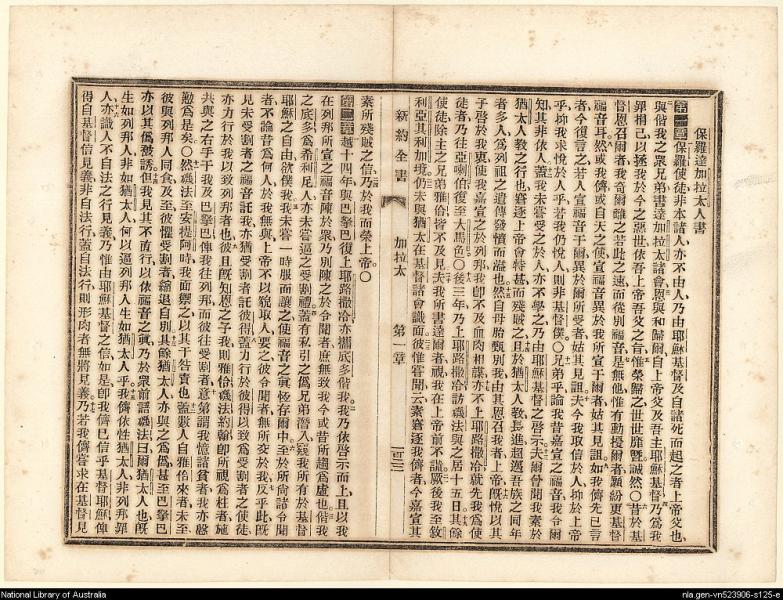 保羅達加拉太人書
第一章保羅使徒非本諸人亦不由人乃由耶穌基督及自諸死而起之者上帝父也
與偕我之眾兄弟書達加拉太諸會恩與和歸爾自上帝父及吾主耶穌基督乃為我
罪捐己以拯我於今之惡世依吾上帝吾父之旨惟榮歸之世世靡曁誠然○昔於基
督恩召爾者我奇爾離之若此之速而從別福音是無他惟有動擾爾者願紛更基督
福音耳然或我儕或自天之使宣福音異於我所宣于爾者姑其見詛如我儕先已言
者今復言之若人宣福音于爾異於爾所受者姑其見詛夫今我取信於人抑於上帝
乎抑我求悅於人乎若我仍悅人則非基督僕○兄弟乎論我昔嘉宣之福音我令爾
知其非依人蓋我未嘗受之於人亦不學之乃由耶穌基督之啓示夫爾曾聞我素於
猶太人教之行也窘逐上帝會特甚而殘賊之且於猶太人教長進超邁吾族之同年
者多人為列祖之遺傳發憤而溢也然自母胎甄別我由其恩召我者上帝旣悅以其
子啓於我裏使我嘉宣之於列邦我卽不及血肉相謀亦不上耶路撒冷就先我為使
徒者乃往亞喇伯復至大馬色○後三年乃上耶路撒冷訪磯法與之居十五日其餘
使徒除主之兄弟雅各皆不及見夫我所書達爾者視我在上帝前不譌厥後我至敘
利亞其利加境仍未與猶太在基督諸會識面彼惟嘗聞云素窘逐我儕者今嘉宣其
新約全書 加拉太 第一章
素所殘賊之信乃於我而榮上帝○
第二章越十四年與巴拏巴復上耶路撒冷亦攜底多偕我我乃依啓示而上且以我
在列邦所宣之福音陳於眾乃別陳之於令聞者庶無致我今或昔所趨為虛也偕我
之底多為希利尼人亦未嘗逼之受割禮蓋有私引之偽兄弟潛入窺我所有於基督
耶穌之自由欲僕我我未嘗一時服而讓之使福音之眞恆存爾中至於所尚諸令聞
者不論昔為何人於我無與上帝不以貌取人要之彼令聞者無所交於我反乎此旣
見未受割者之福音託我亦猶受割者託彼得蓋力行於彼得以致為受割者之使徒
亦力行於我以致列邦者也彼且旣知恩之予我則雅各磯法約翰卽所視為柱者施
共與之右手于我及巴拏巴俾我往列邦而彼往受割者意第謂我憶諸貧者我亦慇
懃為是矣○然磯法至安提阿時我面禦之以其干咎責也蓋數人自雅各來者未至
彼與列邦人同食及至彼懼受割者縮而退自別其餘猶太人亦與之為偽甚至巴拏巴
亦以其偽被誘但我見其不直行以依福音之眞乃於眾前語磯法曰爾猶太人也旣
生如列邦人非如猶太人何以逼列邦人生如猶太人乎我儕依性猶太人非列邦罪
人亦識人不自法之行見義乃惟由耶穌基督之信如是卽我儕已信乎基督耶穌俾
得自基督信見義非自法行蓋自法行則形肉者無將見義乃若我儕嘗求在基督見
National Library of Australia
nla.gen-vn523906-s125-e